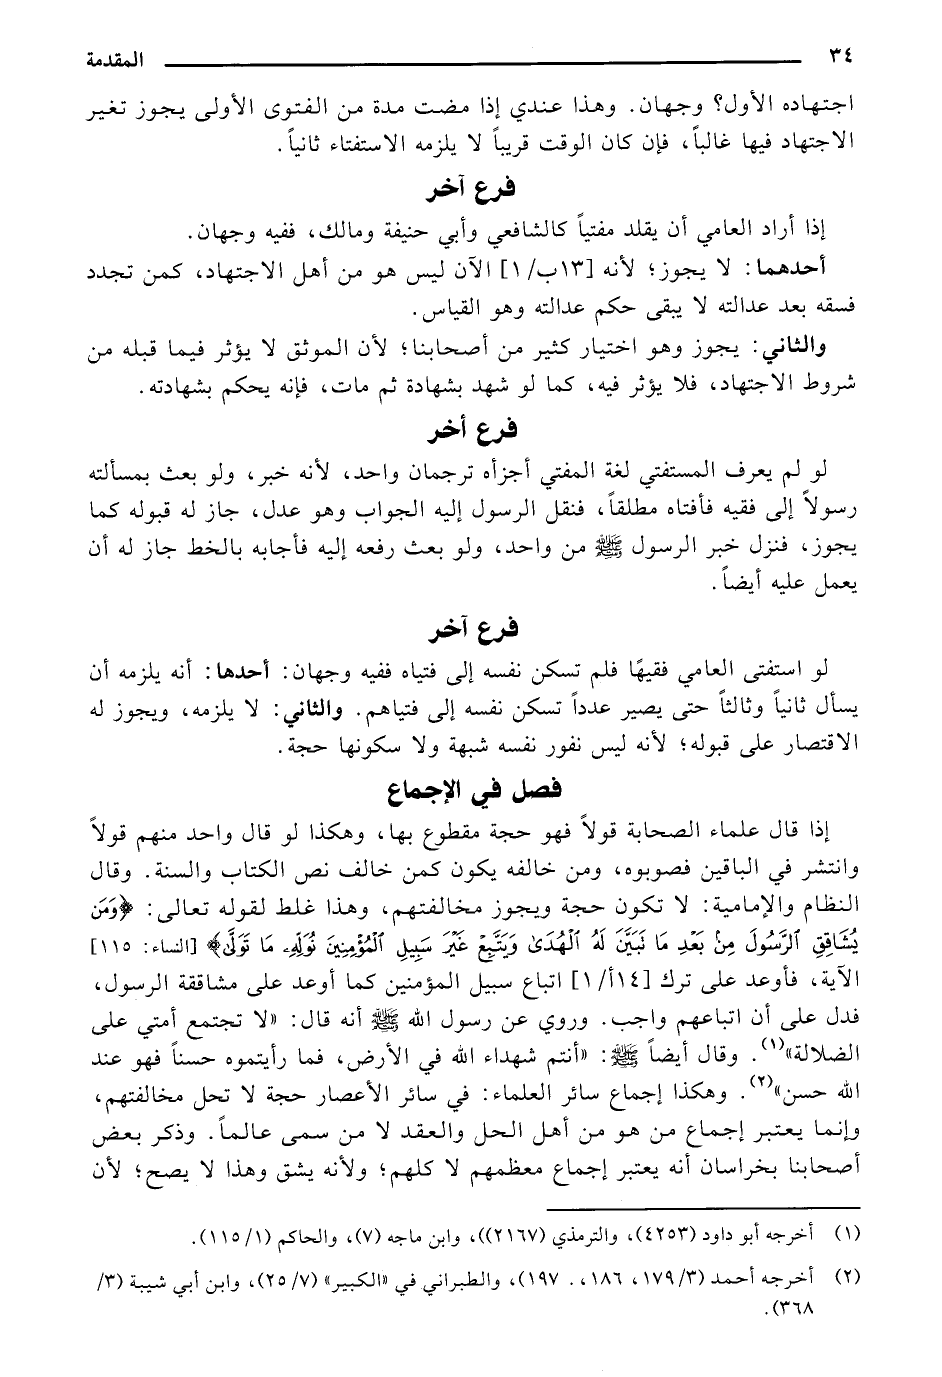 ٣٤ المقدمة
اجتهاده الأول؟ وجهان. وهذا عندي إذا مضت مدة من الفتوى الأولى يجوز تغير
الاجتهاد فيها غالباً، فإن كان الوقت قريباً لا يلزمه الاستفتاء ثانياً.
فرع آخر
إذا أراد العامي أن يقلد مفتياً كالشافعي وأبي حنيفة ومالك، ففيه وجهان.
أحدهما: لا يجوز؛ لأنه [١٣ب/١] الآن ليس هو من أهل الاجتهاد، كمن تجدد
فسقه بعد عدالته لا يبقى حكم عدالته وهو القياس.
والثاني: يجوز وهو اختيار كثير من أصحابنا؛ لأن الموثق لا يؤثر فيما قبله من
شروط الاجتهاد، فلا يؤثر فيه، كما لو شهد بشهادة ثم مات، فإنه يحكم بشهادته.
فرع أخر
لو لم يعرف المستفتي لغة المفتي أجزأه ترجمان واحد، لأنه خبر، ولو بعث بمسألته
رسولاً إلى فقيه فأفتاه مطلقاً، فنقل الرسول إليه الجواب وهو عدل، جاز له قبوله كما
يجوز، فنزل خبر الرسول ﷺ من واحد، ولو بعث رفعه إليه فأجابه بالخط جاز له أن
يعمل عليه أيضاً.
فرع آخر
لو استفتى العامي فقيهًا فلم تسكن نفسه إلى فتياه ففيه وجهان: أحدها: أنه يلزمه أن
يسأل ثانياً وثالثاً حتى يصير عدداً تسكن نفسه إلى فتياهم. والثاني: لا يلزمه، ويجوز له
الاقتصار على قبوله؛ لأنه ليس نفور نفسه شبهة ولا سكونها حجة.
فصل في الإجماع
إذا قال علماء الصحابة قولاً فهو حجة مقطوع بها، وهكذا لو قال واحد منهم قولاً
وانتشر في الباقين فصوبوه، ومن خالفه يكون كمن خالف نص الكتاب والسنة. وقال
النظام والإمامية: لا تكون حجة ويجوز مخالفتهم، وهذا غلط لقوله تعالى: ﴿وَمَن
يُشَاقِقِ ٱلرَّسُولَ مِنۢ بَعْدِ مَا تَبَيَّنَ لَهُ ٱلْهُدَىٰ وَيَتَّبِعْ غَيْرَ سَبِيلِ ٱلْمُؤْمِنِينَ نُوَلِّهِۦ مَا تَوَلَّىٰ﴾ [النساء: ١١٥]
الآية، فأوعد على ترك [١٤أ/١] اتباع سبيل المؤمنين كما أوعد على مشاققة الرسول،
فدل على أن اتباعهم واجب. وروي عن رسول الله ﷺ أنه قال: «لا تجتمع أمتي على
الضلالة»(١). وقال أيضاً ﷺ: «أنتم شهداء الله في الأرض، فما رأيتموه حسناً فهو عند
الله حسن»(٢). وهكذا إجماع سائر العلماء: في سائر الأعصار حجة لا تحل مخالفتهم،
وإنما يعتبر إجماع من هو من أهل الحل والعقد لا من سمى عالماً. وذكر بعض
أصحابنا بخراسان أنه يعتبر إجماع معظمهم لا كلهم؛ ولأنه يشق وهذا لا يصح؛ لأن
(١) أخرجه أبو داود (٤٢٥٣)، والترمذي (٢١٦٧))، وابن ماجه (٧)، والحاكم (١/ ١١٥).
(٢) أخرجه أحمد (٣/ ١٧٩، ١٨٦،. ١٩٧)، والطبراني في «الكبير» (٧/ ٢٥)، وابن أبي شيبة (٣/
٣٦٨).